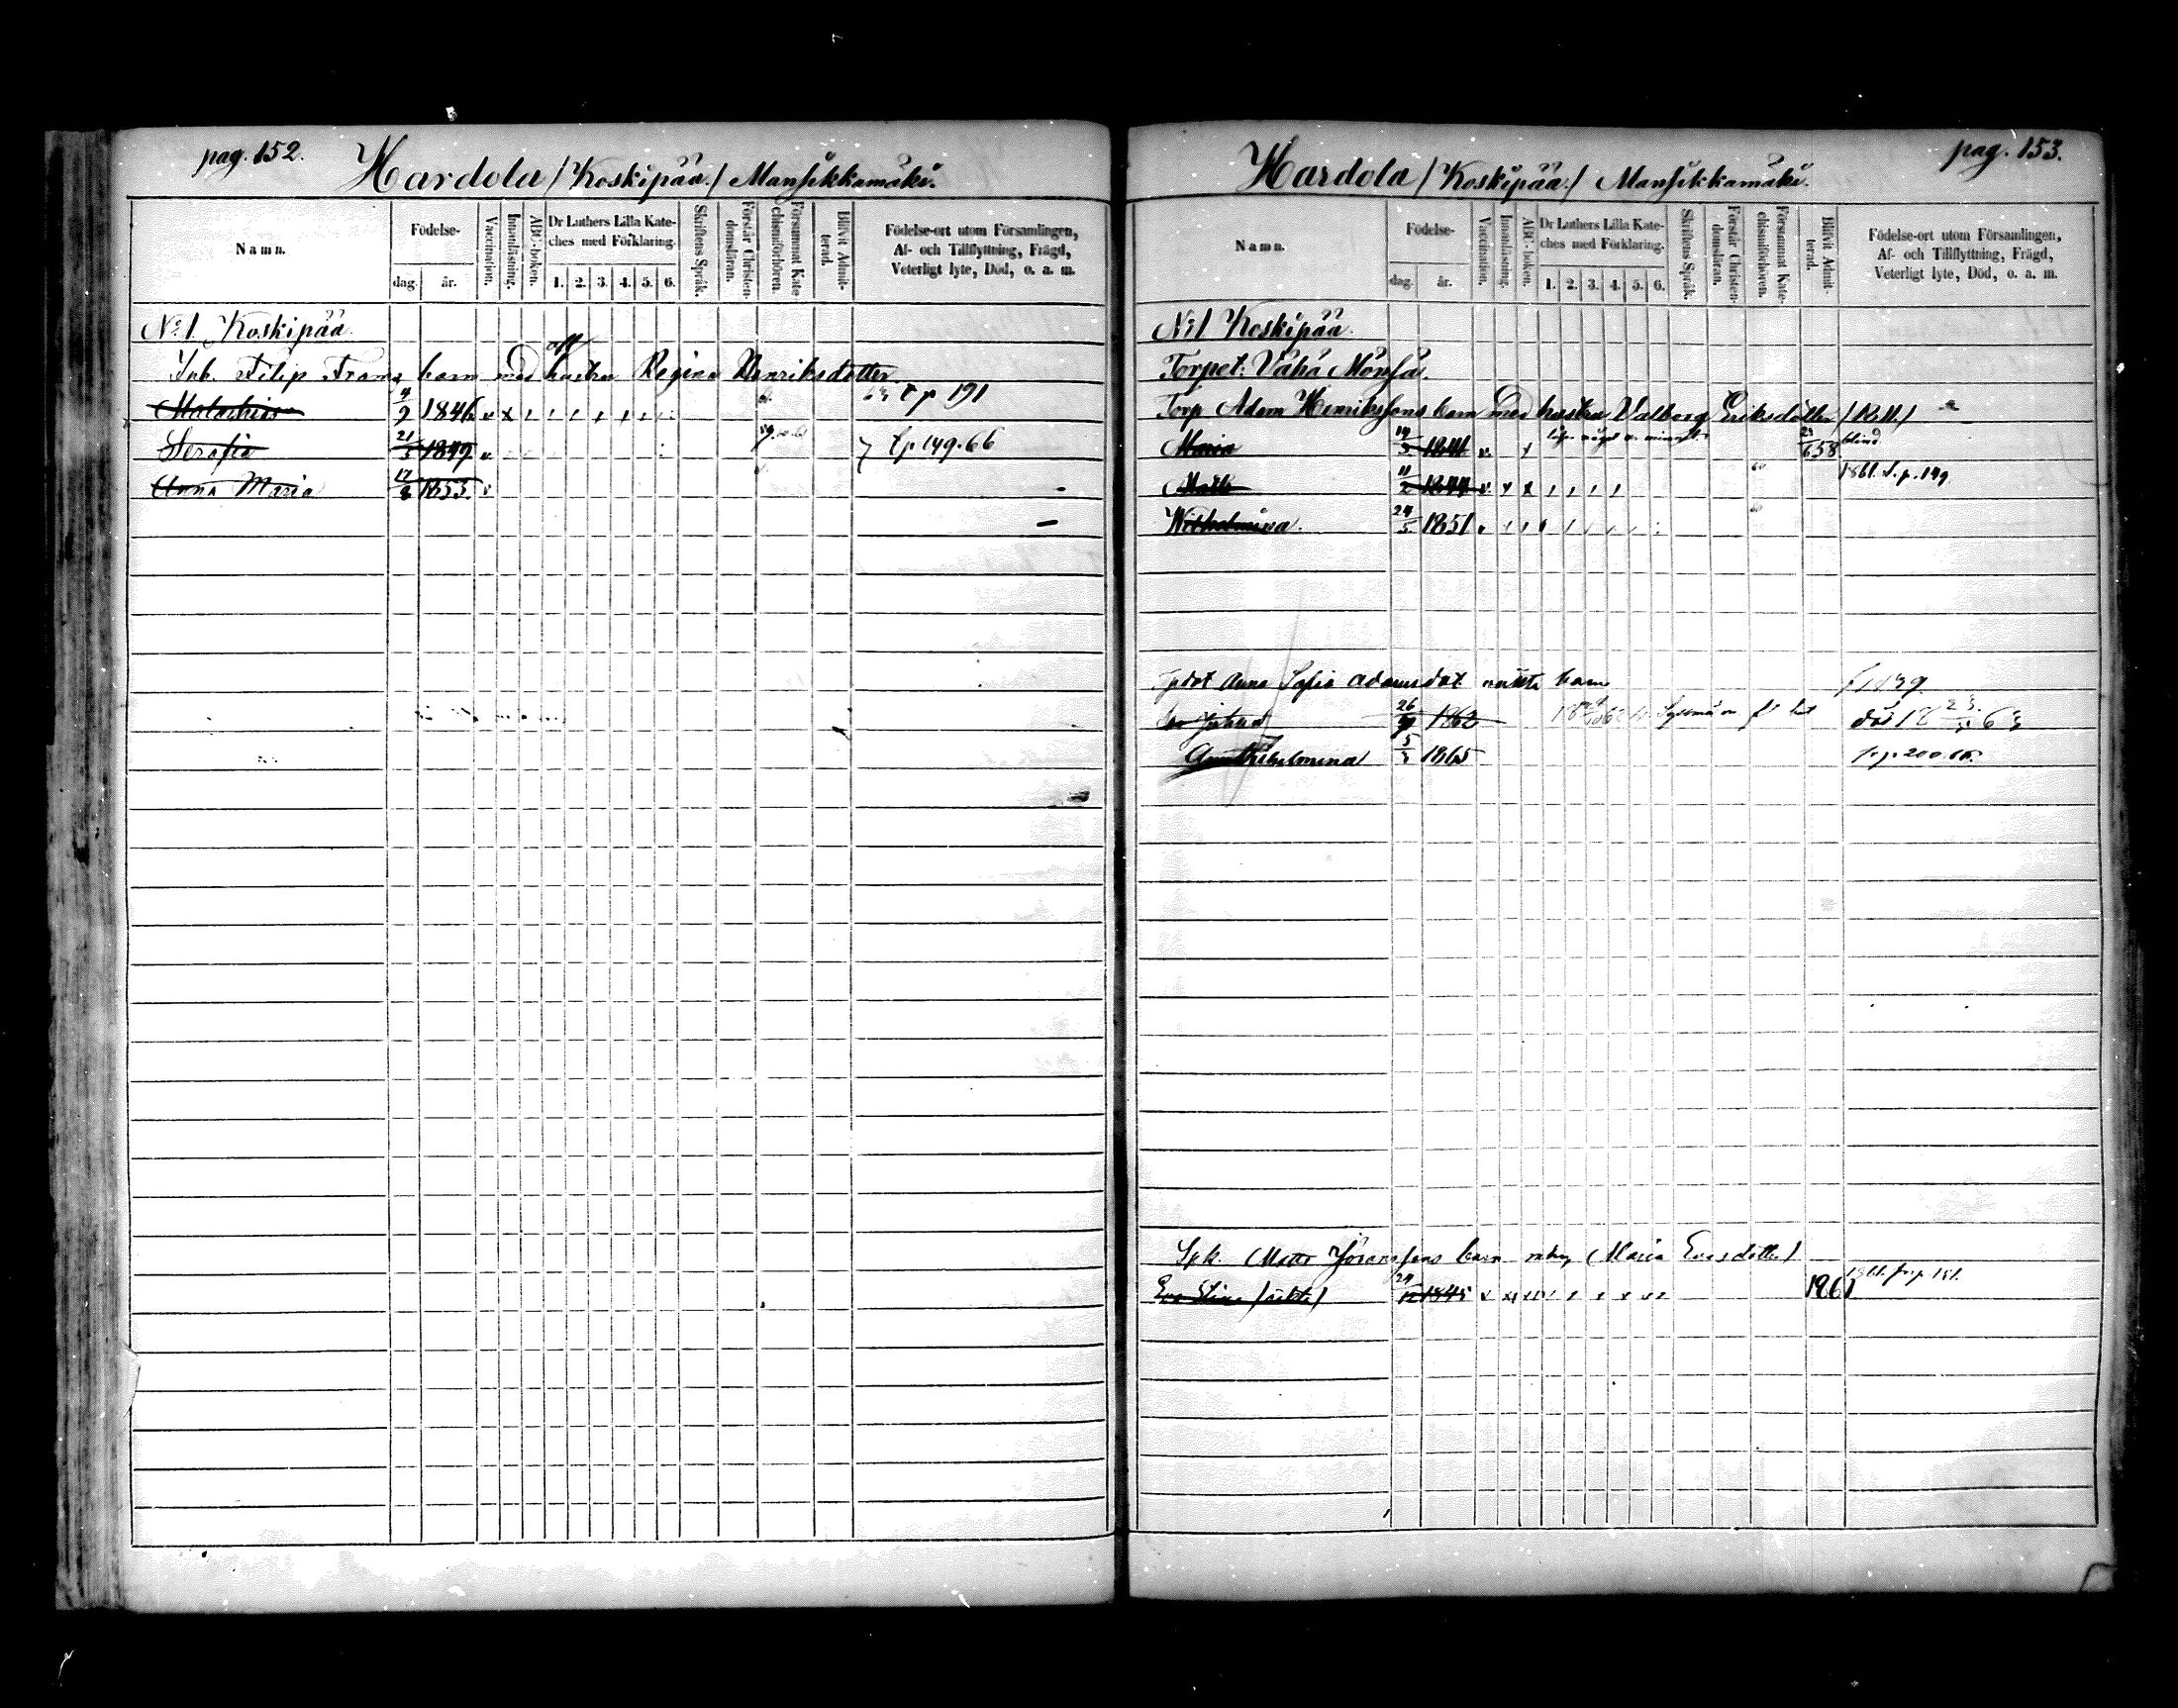 pag. 152.
Hardola / Koskipää. / Mansikkamäki.
Namn.
Födelse-
dag. år.
Vaccination.
Innanläsning.
ABC-boken.
Dr Luthers Lilla Kate-
ches med Förklaring.
1. 2. 3. 4. 5. 6.
Skriftens Språk.
Förstår Christen-
domsläran.
Försummat Kate-
chismiförhören.
Blifvit Admit-
terad.
Födelse-ort utom Församlingen,
Af- och Tillflyttning, Frägd,
Veterligt lyte, Död, o. a. m.
No 1 Koskipää.
Inh. Filip Frams barn med hustru Regina Henriksdotter
Malachias 9 1846 v x t p 191
Serafia 21/5 1849 v. t p 149. 66
Anna Maria 17/8 1853. v
pag. 153.
Hardola / Koskipää. / Mansikkamäki.
Namn.
Födelse-
dag. år.
Vaccination.
Innanläsning.
ABC-boken.
Dr Luthers Lilla Kate-
ches med Förklaring.
1. 2. 3. 4. 5. 6.
Skriftens Språk.
Förstår Christen-
domsläran.
Försummat Kate-
chismiförhören.
Blifvit Admit-
terad.
Födelse-ort utom Församlingen,
Af- och Tillflyttning, Frägd,
Veterligt lyte, Död, o. a. m.
No 1 Koskipää.
Torpet: Vähä Mönsä.
Torp Adam Henrikssons barn med hustru Valborg Eriksdotter
Maria 1841 v. 58 blind
Matts 11/2 1844 v. x x 60 1861. t. p. 149
Wilhelmina. 24/5 1851 v 60
Anna Sofia Adamsdot. oäkta barn
Johan 26 1862 död 18 63
Wilhelmina 5/3 1865 p. 200
Matts Göranssons barn Maria Evasdotter)
Eva Stina (oäkta) 24/12 1845 v 1861 1861.